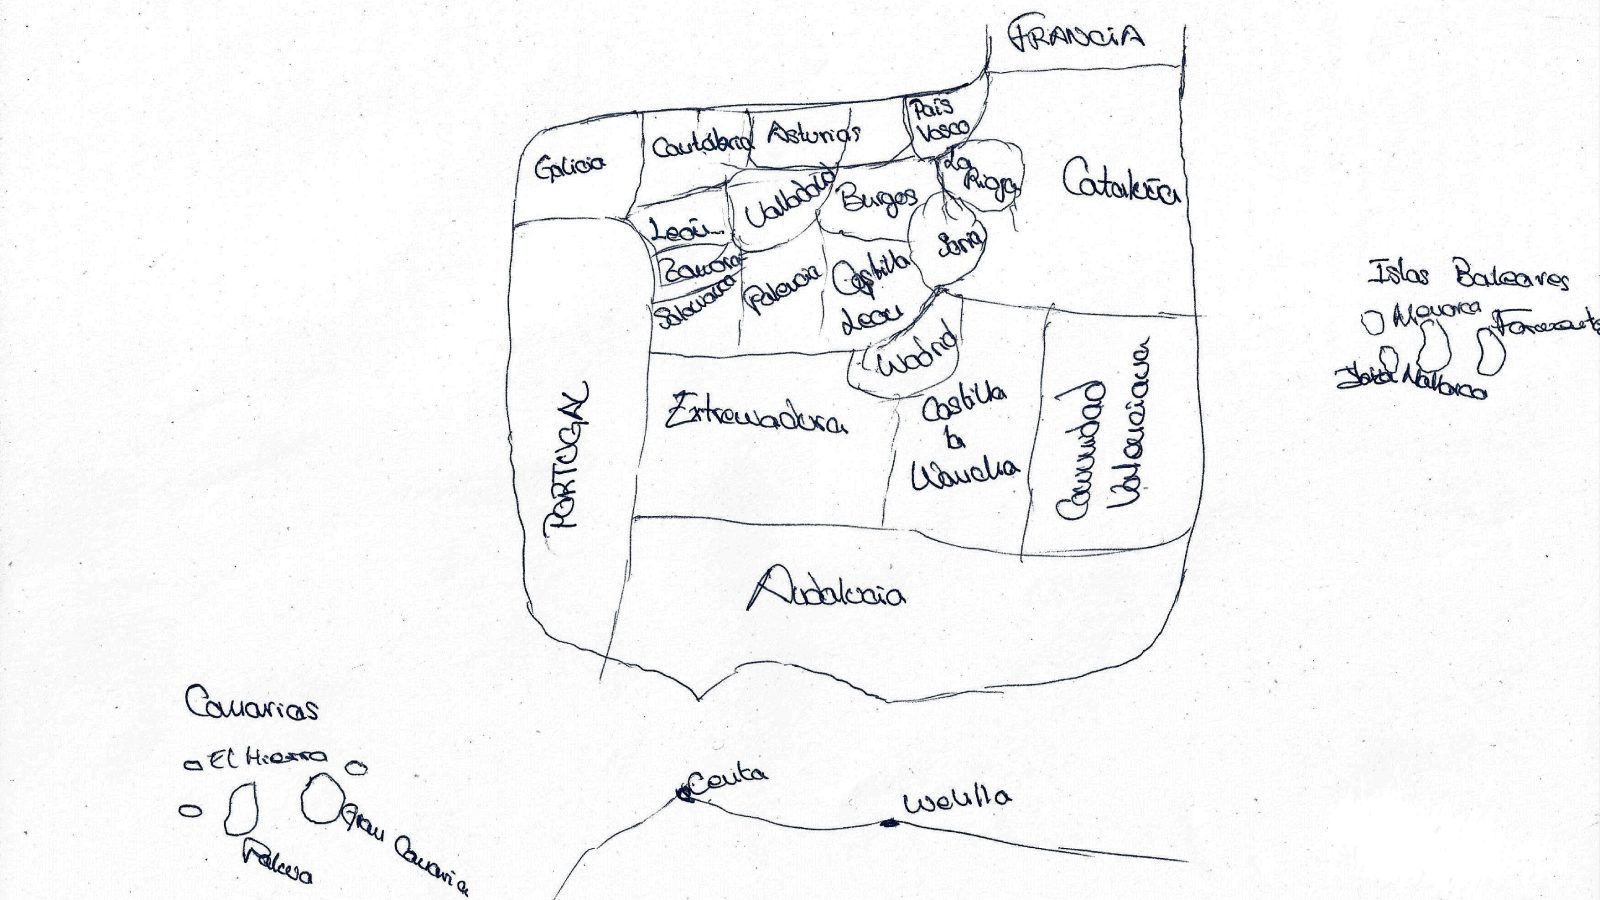 FRANCIA
País
Vasco
Galicia
Cantábria
Asturias
La
Rioja
Cataluña
León
Valladolid
Burgos
Soria
Zamora
Salamanca
Palencia
Castilla
León
Madrid
Extremadura
Castilla
la
Mancha
Comunidad
Valenciana
PORTUGAL
Andalucia
Islas Baleares
Menorca
Mallorca
Canarias
El Hierro
Gran Canaria
Palma
Ceuta
Melilla